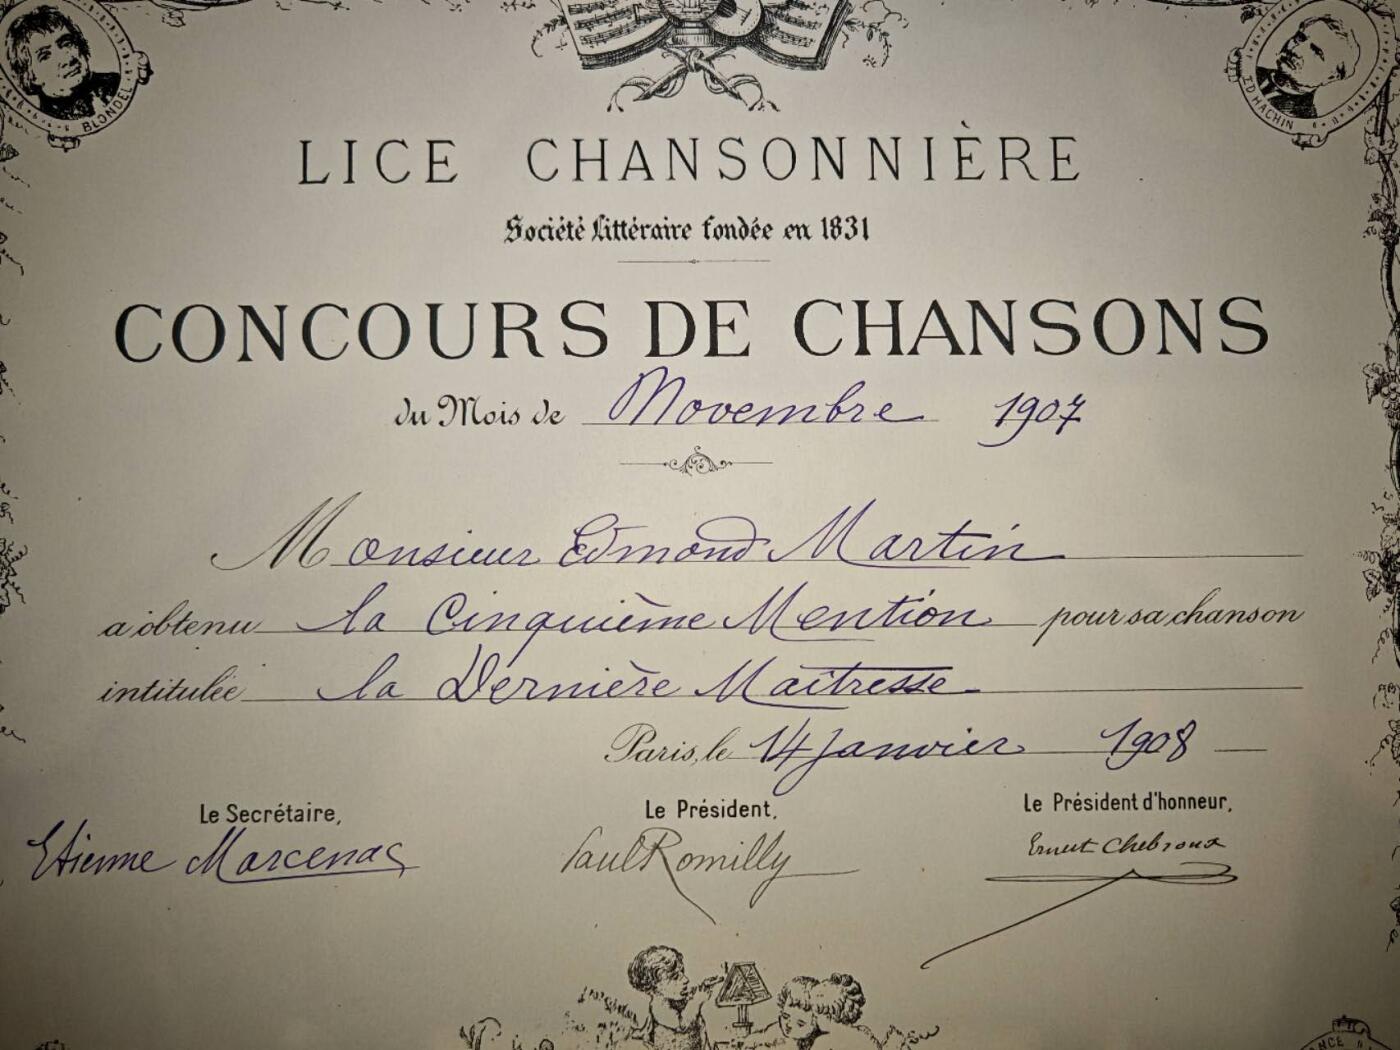 BLONDEL
ED HACHIN
LICE CHANSONNIÈRE
Société Littéraire fondée en 1831
CONCOURS DE CHANSONS
du Mois de Novembre 1907
Monsieur Edmond Martin
a obtenu la Cinquième Mention pour sa chanson
intitulée la Dernière Maîtresse
Paris, le 14 Janvier 1908
Le Secrétaire,
Le Président,
Le Président d'honneur,
Etienne Marcenac
Paul Romilly
Ernest Chebroux